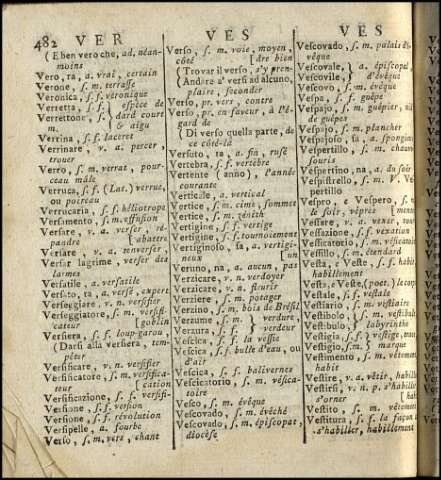 482 VER VES VES
(E ben vero che, ad. néan-
moins
Vero, ra, a. vrai, certain
Verone, s. m. terrasse
Veronica, s. f. véronique
Verretta, s. f. } espèce de
Verrettone, s. } dard court
m. } & aigu
Verrina, s. f. laceret
Verrinare, v. a. percer,
trouer
Verro, s. m. verrat, pour-
ceau mâle
Verruca, s. f. (Lat.) verrue,
ou poireau
Verrucaria, s. f. héliotrope
Versamento, s. m. effusion
Versare, v. a. verser, ré-
pandre [abatere
Versare, v. a. renverser,
Versar lagrime, verser des
larmes
Versatile, a. versatile
Versato, ta, a. versé, expert
Verseggiare, v. n. versifier
Verseggiatore, s. m. versifi-
cateur [goblin
Versiera, s. f. loup-garou,
(Darsi alla versiera, tem-
pêter
Versificare, v. n. versifier
Versificatore, s. m. versifica-
teur [cation
Versificazione, s. f. versifi-
Versione, s. f. version
Versione, s. f. révolution
Versipelle, a. fourbe
Verso, s. m. vers, chant
Verso, s. m. voie, moyen,
côté [dre bien
(Trovar il verso, s'y pren-
(Andare a' versi ad alcuno,
plaire, seconder
Verso, pr. vers, contre
Verso, pr. en faveur, à l'é-
gard de
(Di verso quella parte, de
ce côté-là
Versuto, ta, a. fin, rusé
Vertebra, s. f. vertèbre
Vertente (anno), l'année
courante
Verticale, a. vertical
Vertice, s. m. cime, sommet
Vertice, s. m. zénith
Vertigine, s. f. vertige
Vertigine, s. f. tournoiement
Vertiginoso, sa, a. vertigi-
neux [un
Veruno, na, a. aucun, pas
Verzicare, v. n. verdoyer
Verzicare, v. n. fleurir
Verziere, s. m. potager
Verzino, s. m. bois de Brésil
Verzume, s. m. } verdure,
Verzura, s. f. } verdeur
Vescica, s. f. la vessie
Vescica, s. f. bulle d'eau, ou
d'air
Vescica, s. f. balivernes
Vescicatorio, s. m. vésica-
toire
Vesco, s. m. évêque
Vescovado, s. m. évêché
Vescovado, s. m. épiscopat,
diocèse
Vescovado, s. m. palais d'é-
vêque
Vescovale, } a. épiscopal,
Vescovile, } d'évêque
Vescovo, s. m. évêque
Vespa, s. f. guêpe
Vespajo, s. m. guêpier, nid
de guêpes
Vespajo, s. m. plancher
Vespajoso, sa, a. spongieux
Vespertillo, s. m. chauve-
souris
Vespertino, na, a. du soir
Vespistrello, s. m. V. Ve-
spertillo
Vespro, e Vespero, s. m.
le soir, vêpres
Vessare, v. a. vexer,
Vessazione, s. f. vexation
Vessicatorio, s. m. vésicatoire
Vessillo, s. m. étendard
Vesta, e Veste, s. f. habit,
habillement
Vesta, e Veste, (poet.) le corps
Vestale, s. f. vestale
Vestiario, s. f. vestiaire
Vestibolo, } s. m. vestibule,
Vestibulo, } labyrinthe
Vestigia, s. f. } vestige,
Vestigio, s. m. } marque
Vestimento, s. m. vêtement,
habit
Vestire, v. a. vêtir, habiller
Vestirsi, v. n. p. s'habiller,
s'orner
Vestito, s. m. vêtement
Vestitura, s. f. la façon
s'habiller, habillement